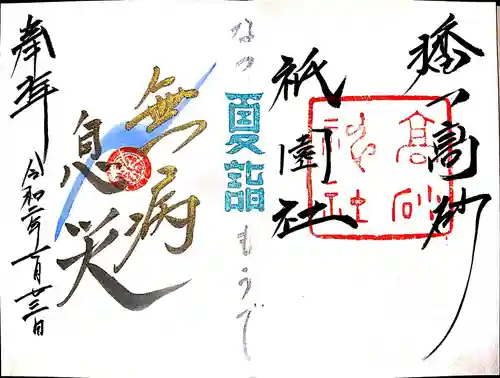 播丶高砂
祇園社
高砂
神社
なつ夏詣もうで
無病
息災
奉拝
令和二年七月廿三日